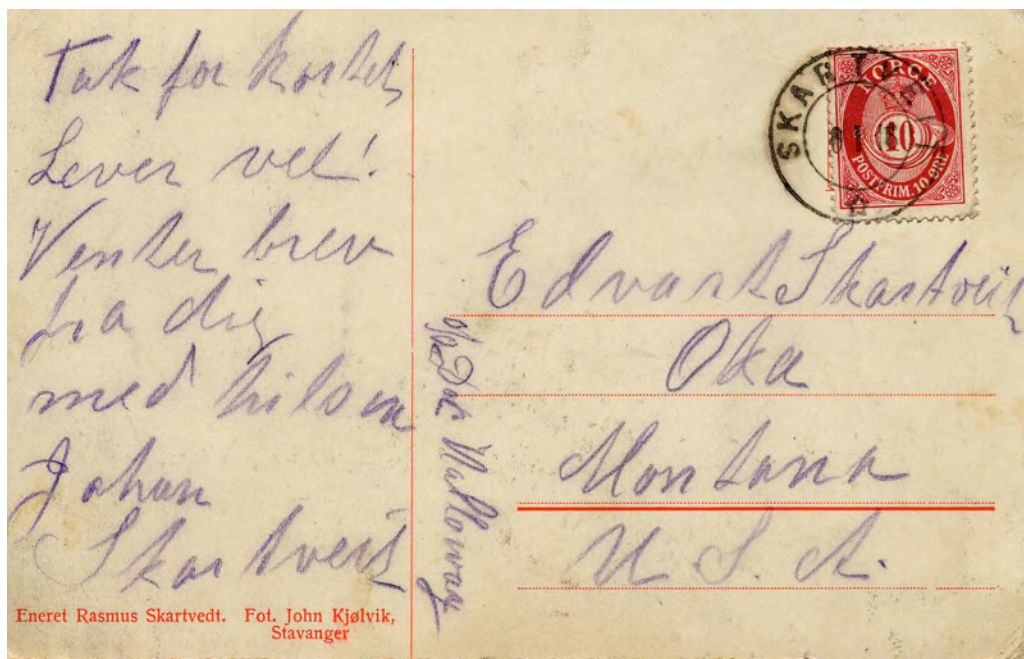 Tak for kortet,
Lever vel!
Venter brev
fra dig
med hilsen
Johan
Skartveit
Eneret Rasmus Skartvedt. Fot. John Kjølvik,
Stavanger
NORGE
10
POSTFRIM. 10 ØRE
Edvart Skartveit
Oka
Montana
U. S. A.